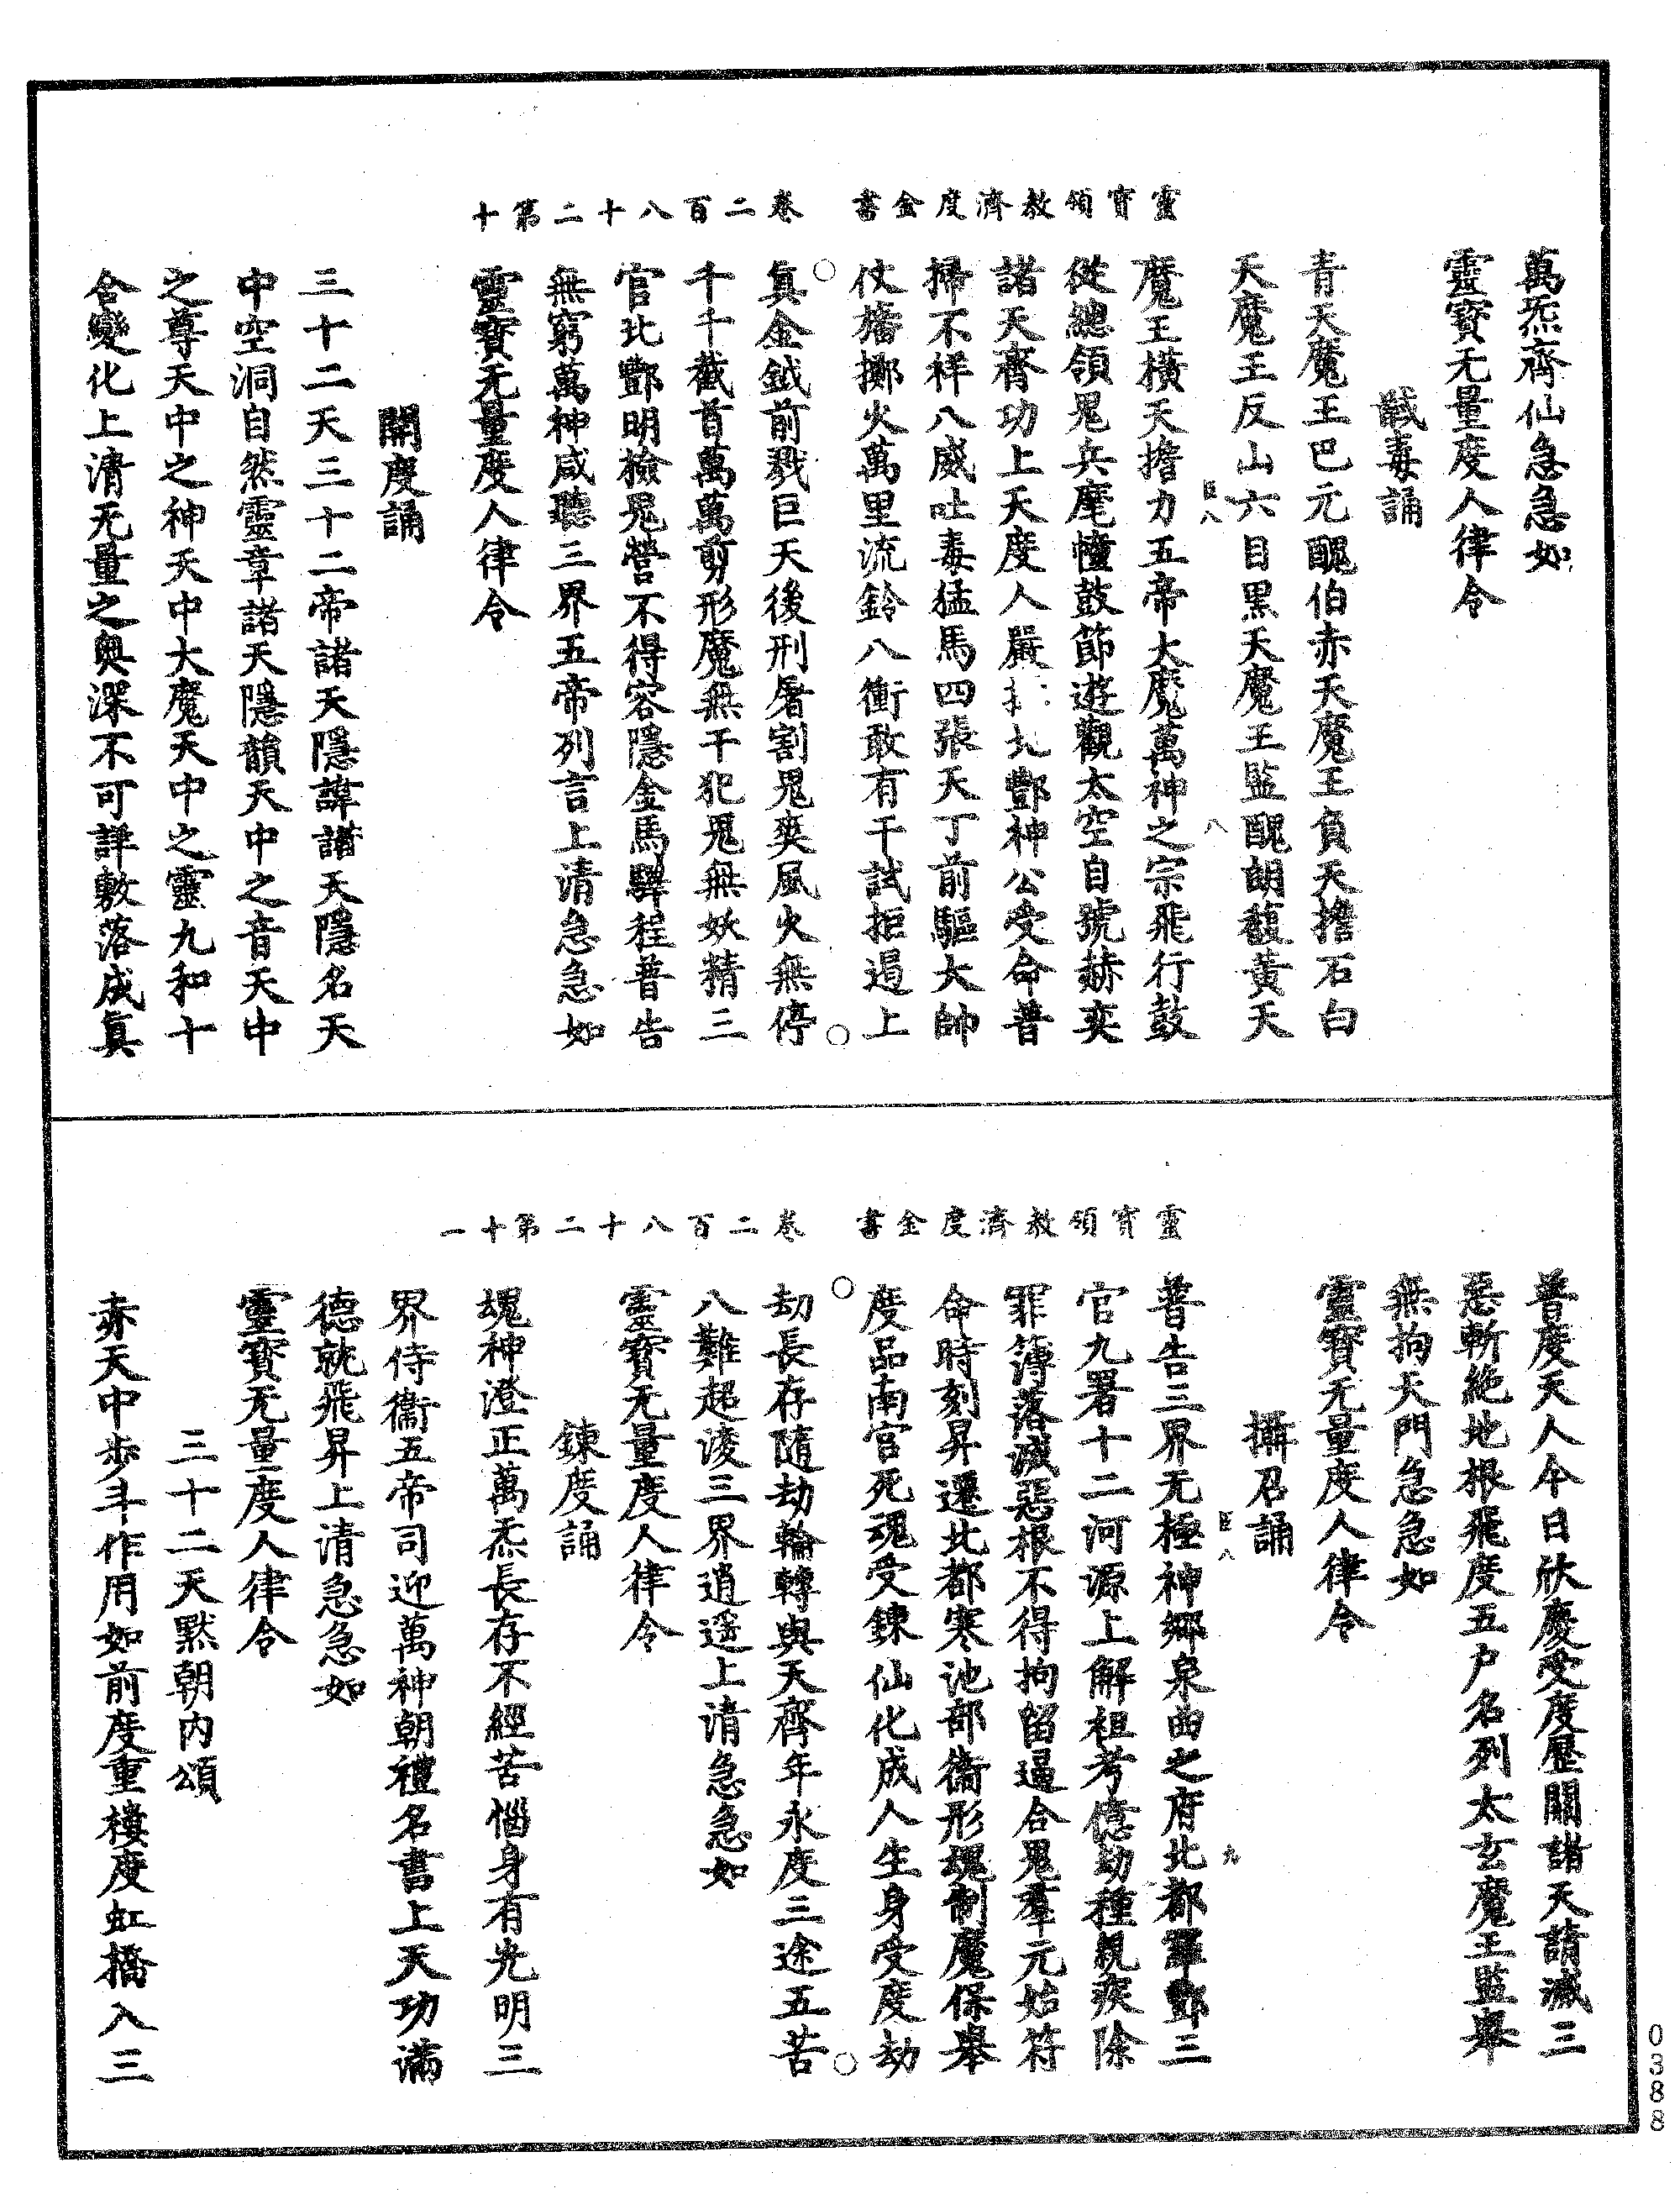 靈寶領教濟度金書　卷二百八十二第十
萬炁齊仙急急如
靈寶无量度人律令
馘毒誦
青天魔王巴元醜伯赤天魔王負天擔石白
天魔王反山六目黑天魔王監醜朗馥黃天
魔王橫天擔力五帝大魔萬神之宗飛行鼓
從總領鬼兵麾幢鼓節遊觀太空自號赫奕
諸天齊功上天度人嚴北酆神公受命普
掃不祥八威吐毒猛馬四張天丁前驅大帥
仗旛擲火萬里流鈴八衝敢有干試拒遏上
真金鉞前戮巨天後刑屠割鬼爽風火無停
千千截首萬萬剪形魔無干犯鬼無妖精三
官北酆明檢鬼營不得容隱金馬驛程普告
無窮萬神咸聽三界五帝列言上清急急如
靈寶无量度人律令
開度誦
三十二天三十二帝諸天隱諱諸天隱名天
中空洞自然靈章諸天隱韻天中之音天中
之尊天中之神天中大魔天中之靈九和十
合變化上清无量之奧深不可詳敷落成真
八
八
靈寶領教濟度金書　卷二百八十二第十一
普度天人今日欣慶受度歷關諸天請滅三
惡斬絕地根飛度五户名列太玄魔王監舉
無拘天門急急如
靈寶无量度人律令
攝召誦
普告三界无極神鄉泉曲之府北都羅酆三
官九署十二河源上解祖考億劫種親疾除
罪簿落滅惡根不得拘留逼合鬼羣元始符
命時刻昇遷北都寒池部衛形魂制魔保舉
度品南宮死魂受鍊仙化成人生身受度劫
劫長存隨劫輪轉與天齊年永度三途五苦
八難超淩三界逍遥上清急急如
靈寶无量度人律令
鍊度誦
魂神澄正萬炁長存不經苦惱身有光明三
界侍衞五帝司迎萬神朝禮名書上天功滿
德就飛昇上清急急如
靈寶无量度人律令
三十二天黙朝内頌
赤天中步斗作用如前度重樓度虹橋入三
八
九
0388